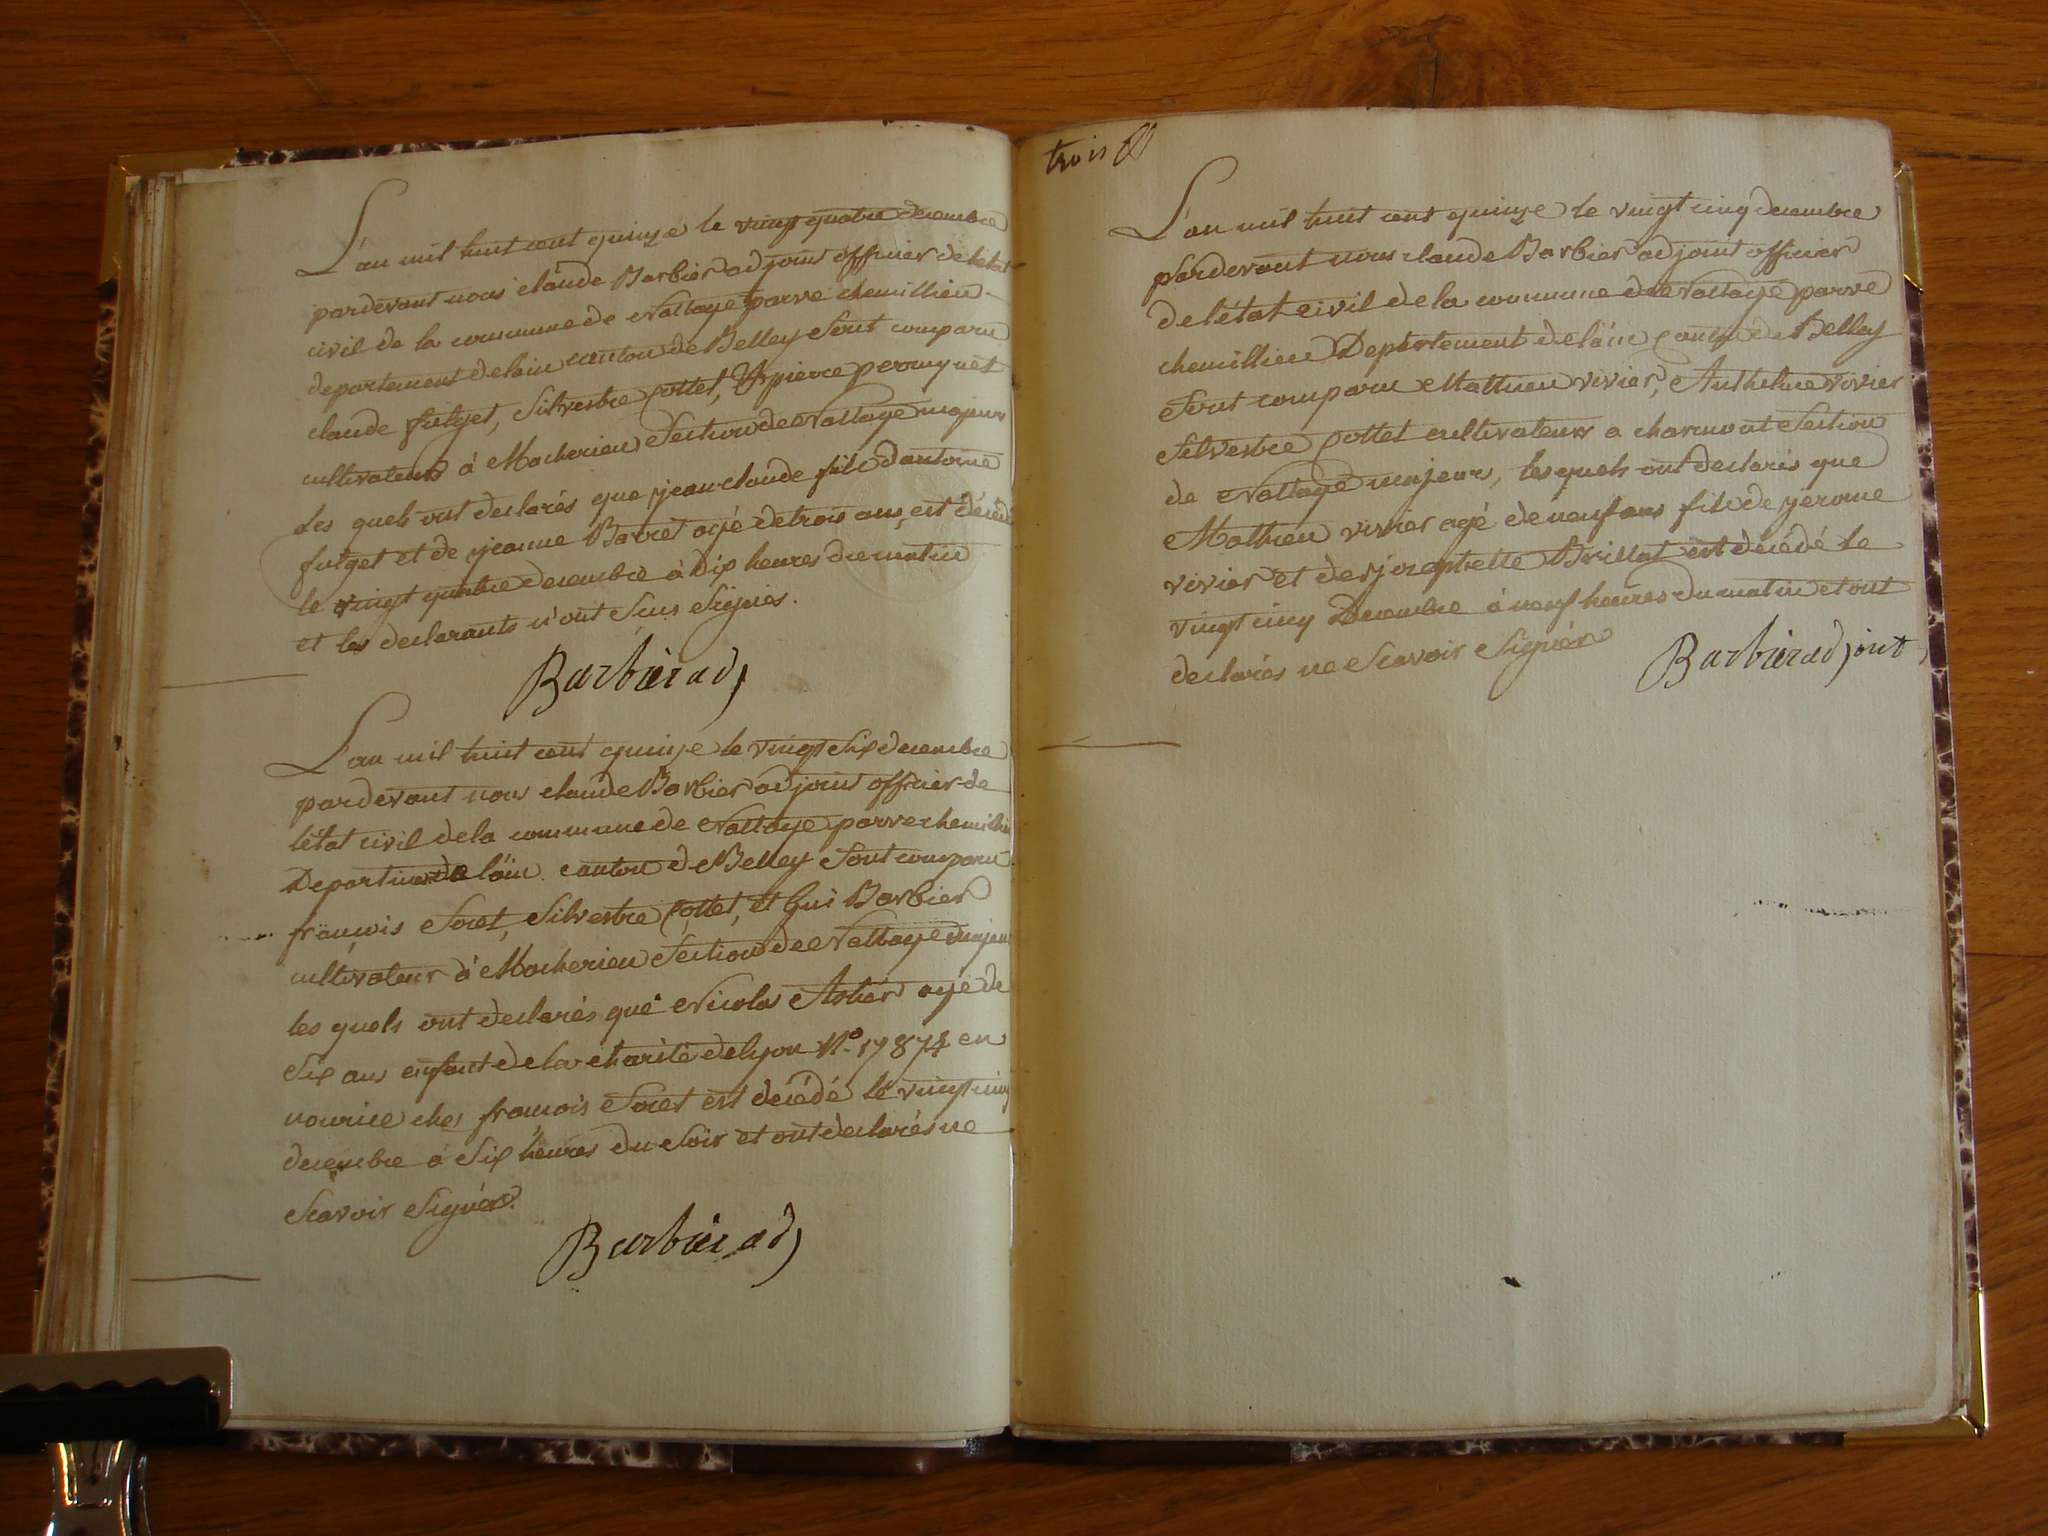 L'an mil huit cent quinze le vingt quatre decembre
pardevant nous claude Barbier adjoint officier de letat
civil de la commune de Nattage parve chemillieu
departement delain canton de Belley Sont comparu
claude fulget, Silvestre Cottet, & pierre peronnet
cultivateurs à Macherieu Section de Nattage majeurs
Les quels ont declarés que jean claude fils dantoine
fulget et de jeanne Barret agé de trois ans, est décédé
le vingt quatre decembre à Dix heures du matin
et les declarants n'ont Seus Signés.
Barbier adj
L'an mil huit cent quinze le vingt Six decembre
pardevant nous claude Barbier adjoint officier de
létat civil dela commune de Nattage parve chemillieu
Departiment de láin canton de Belley Sont comparu
françois Soret, Silvestre Cottet, et Gui Barbier
cultivateur à Macherieu Section de Nattage majeur
les quels ont declarés que Nicolas agé de
Six ans enfant de la charité de lyon N.o 17874 en
nourice ches françois Soret est décédé le vingt cinq
decembre à Six heures du Soir et ont declarés ne
Scavoir Signér.
Barbier adj
trois
L'an mil huit cent quinze le vingt cinq decembre
pardevant nous claude Barbier adjoint officier
de létat civil de la commune de Nattage parve
chemillieu Departement de láin canton de Belley
Sont comparu Mathieu vivier, Anthelme vivier
Silvestre Cottet cultivateurs a charmont Section
de Nattage majeurs, les quels ont declarés que
Mathieu vivier agé de neuf ans fils de jerome
vivier et de josephette Brillat est décédé le
vingt cinq Decembre à neuf heures du matin et ont
declarés ne Scavoir Signér
Barbier adjoint